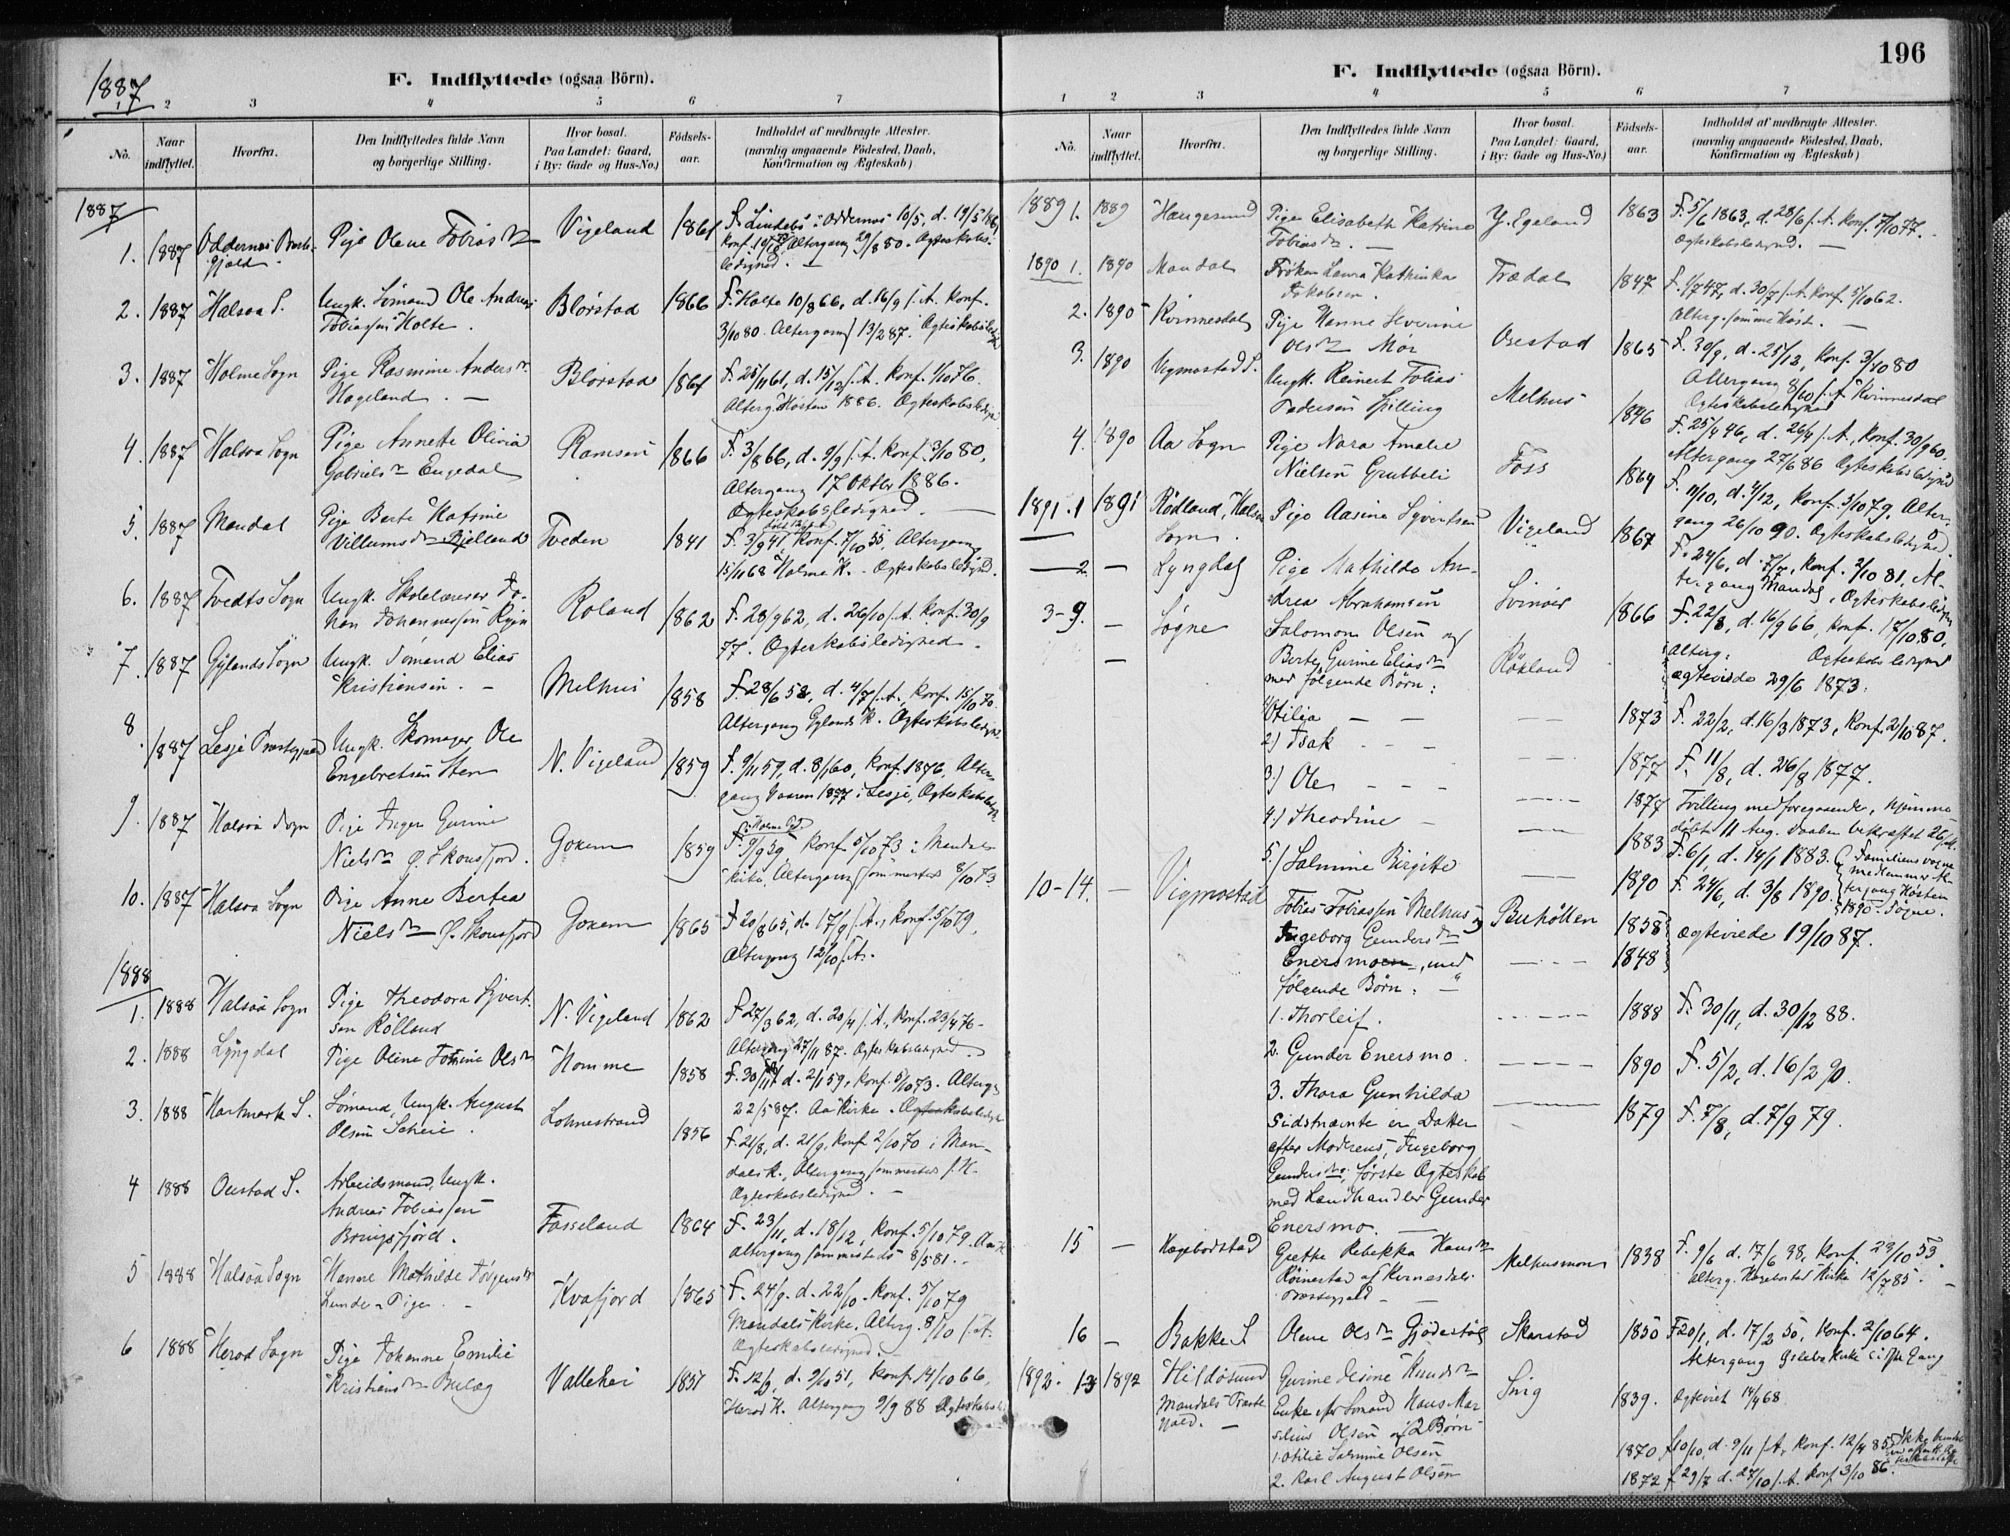 1887
F. Indflyttede (ogsaa Börn).
1 2 3 4 5 6 7
No.
Naar
indflyttet.
Hvorfra.
Den Indflyttedes fulde Navn
og borgerlige Stilling.
Hvor bosat.
Paa Landet: Gaard,
i By: Gade og Hus-No.)
Födsels-
aar.
Indholdet af medbragte Attester.
(navnlig angaaende Födested, Daab,
Konfirmation og Ægteskab)
1887
1. 1887 Oddernes Præste-
gjeld Pige Olene Tobiasdr Vigeland 1861
Altergang 29/8 80. Ægteskabs-
ledighed. —
2. 1887 Halsaa S. Ungk. Sømand Ole Andreas
Tobiassen Holte. Blørstad 1866 F. Holte 10/8 66, d. 16/9 s. A. Konf.
3/10 80. Altergang 13/2 87. Ægteskabsledighed
3. 1887 Holme Sogn Pige Rasmine Andersdr
Hageland. — Blørstad 1861 F. 25/11 61, d. 15/12 s. A. Konf. 1/10 76.
Alterg. Høsten 1886. Ægteskabsledighed
4. 1887 Halsaa Sogn Pige Annete Olivia
Gabrielsdr Engedal Ramsen 1866 F. 3/8 66, d. 9/9 s. A. Konf. 3/10 80.
Altergang 17 Oktbr 1886.
Ægteskabsledighed. —
5. 1887 Mandal Pige Berte Katrine
Villumsdr Bjelland Tveden 1841 F. 3/9 41, Konf. 7/10 55, Altergang
15/11 68 Holme K. - Ægteskabsledighed.
6. 1887 Tvedts Sogn Ungk. Skolelærerer Jo-
han Johannessen Roland 1862 F. 28/9 62, d. 26/10 s. A. Konf. 30/9
77. Ægteskabsledighed.
7. 1887 Gylands Sogn Ungk. Sømand Elias
Kristiansen. — Melhus 1858 F. 28/6 58, d. 4/7 s. A., Konf. 15/10 70.
Altergang Gylands K. Ægteskabsledighed.
8. 1887 Lesje Præstegjeld Ungk. Skomager Ole
Engebretsen Sten N. Vigeland 1859 F. 9/11 59, d. 8/1 60, Konf. 1876, Alter-
gang Vaaren 1877 i Lesje, Ægteskabsledighed
9. 1887 Halsaa Sogn Pige Inger Gurine
Nielsdr Ø. Skonsfjord. Goksem 1859 Konf. 5/10 73 i Mandals
Kirke. Altergang sammesteds 8/10 73
10. 1887 Halsaa Sogn Pige Anne Bertea
Nielsdr Ø. Skonsfjord Goksem 1865 F. 20/8 65, d. 17/9 s. A., Konf. 5/10 79,
Altergang 12/10 s. A.
1888
1. 1888 Halsaa Sogn Pige Theodora Syvert-
sen Rølland N. Vigeland 1862 F. 27/3 62, d. 20/4 s. A., Konf. 23/4 76.
Altergang 27/11 87. Ægteskabsledighed.
2. 1888 Lyngdal Pige Oline Olsdr Homme 1858 d. 2/1 59, Konf. 5/10 73. Alterg.
22/5 87. Aa Kirke. Ægteskabsledighed
3. 1888 Hartmark S. Sømand, Ungk. August
Olsen Scheie. Lohnestrand 1856 F. 21/8, d. 21/9, Konf. 2/10 70 i Man-
dals K., Altergang sammesteds s. A.
Ægteskabsledighed. —
4 1888 Ouestad S. Arbeidsmand, Ungk.
Andreas Tobiassen
Bringsfjord. Fasseland 1864 F. 23/11, d. 18/12, Konf. 5/10 79. Aa K
Altergang sammesteds 8/5 81.
5 1888 Halsaa Sogn Hanne Mathilde Jörgensdr
Lunde - Pige. Kvafjord 1865 F. 24/9. d. 22/10. Konf. 5/10 79
Mandals Kirke. Alterg. 8/10 s. A.
Ægteskabsledighed.
6 1888 Herod Sogn Pige Johanne Emilie
Kristiansdr Bulæg Vallehei 1851 d. 9/10 51, Konf. 14/10 66,
Herod K. Altergang 9/9 88 Ægteskabsl.
196
F. Indflyttede (ogsaa Börn).
1 2 3 4 5 6 7
No.
Naar
indflyttet.
Hvorfra.
Den Indflyttedes fulde Navn
og borgerlige Stilling.
Hvor bosat.
Paa Landet: Gaard,
i By: Gade og Hus-No.)
Födsels-
aar.
Indholdet af medbragte Attester.
(navnlig angaaende Födested, Daab,
Konfirmation og Ægteskab)
1889 1. 1889 Haugesund Pige Elisabeth Katrine
Tobiasdr. — Y. Egeland 1863 F. 5/6 1863, d. 28/6 s. A. Konf. 7/10 77.
Ægteskabsledighed. —
1890 1. 1890 Mandal Frøken Laura Kathinka
Jakobsen. Trædal 1847 F. 1/7 47, d. 30/7 s. A. Konf. 5/10 62.
Alterg. samme Høst. —
2. 1890 Kvinnesdal Pige Hanne Severine
Olsdr Moe Osestad 1865 F. 30/9, d. 25/12, Konf. 3/10 80
Altergang 8/10 s. A. Kvinnesdal
Ægteskabsledighed
3. 1890 Vigmostad S. Ungk. Reinert Tobias
Pedersen Spilling Melhus 1846 F. 25/4 46, d. 26/4 s. A., Konf. 30/9 60.
Altergang 27/6 86 Ægteskabsledighed
4. 1890 Aa Sogn Pige Nora Amalie
Nielsen Grubbeli Foss 1864 F. 11/10, d. 4/12, Konf. 5/10 79, Alter-
gang 26/10 90. Ægteskabsledighed.
1891. 1 1891 Rödland, Halsaa
Sogn. Pige Aasine Syvertsen Vigeland 1867 F. 24/6, d. 7/7, Konf. 2/10 81, Al-
tergang Mandal, Ægteskabsledighed
2 — Lyngdal Pige Mathilde An-
drea Abrahamsen Svinøer 1866 F. 22/8, d. 16/9 66, Konf. 17/10 80,
Alterg. Ægteskabsledighed
3-9. — Søgne Salomon Olsen og
Berte Gurine Eliasdr
med følgende Børn: Röksland ægteviede 29/6 1873.
1) Otilia — — 1873 F. 22/2, d. 16/3 1873, Konf. 2/10 87.
2) Isak - - - 1877 F. 11/8, d. 26/8 1877.
3.) Ole - - - 1877 Tvilling med foregaaende, hjemme-
døbt 11 Aug. Daaben bekræftet
4.) Theodine - 1883 F. 6/1, d. 14/1 1883. Familiens voxne
medlemmer Al-
tergang Høsten
1890 i Søgne.
5.) Salmine Birgitte 1890 F. 24/6, d. 3/8 1890.
10-14. — Vigmostad Tobias Tobiassen Melhus og
Ingeborg Gundersdr
Enersmoen, med
følgende Börn: Buhölten 1858
1848 ægteviede 19/10 87.
1. Thorleif. 1888 F. 30/11, d. 30/12 88.
2. Gunder Enersmo. 1890 F. 5/2, d. 16/2 90.
3. Thora Gunhilda 1879 F. 7/8, d. 7/9 79.
Sidstnævnte er Datter
efter Moderens, Ingeborg
Gundersdrs, første Ægteskab
med Landhandler Gunder
Enersmo. —
15 — Hægebostad Grethe Rebekka Hansdr
Röinestad af Kvinesdals
Præstegjæld — Melhusmoen 1838 F. 9/6 d. 17/6 38, Konf. 23/10 53.
Alterg. Hægebostad Kirke 12/7 85.
16 — Bakke S Olene Olsdr Gjödestøl Skarstad 1850 F. 20/1, d. 17/2 50, Konf. 2/10 64.
Altergang
1892. 1-3 1892 Hildösund
Mandals Præste-
gjæld. — Gurine Knudsdr
Enke efter Sømand Hans Mar-
selius Olsen og 2 Børn Snig 1839. Ægteviet 14/4 68
1. Otilie Salmine Olsen 1870 f. 10/10, d. 9/11 s. A, Konf. 12/4 85
2. Karl August Olsen 1872 f. 29/7 d. 27/10 s. A. Konf. 3/10 86.